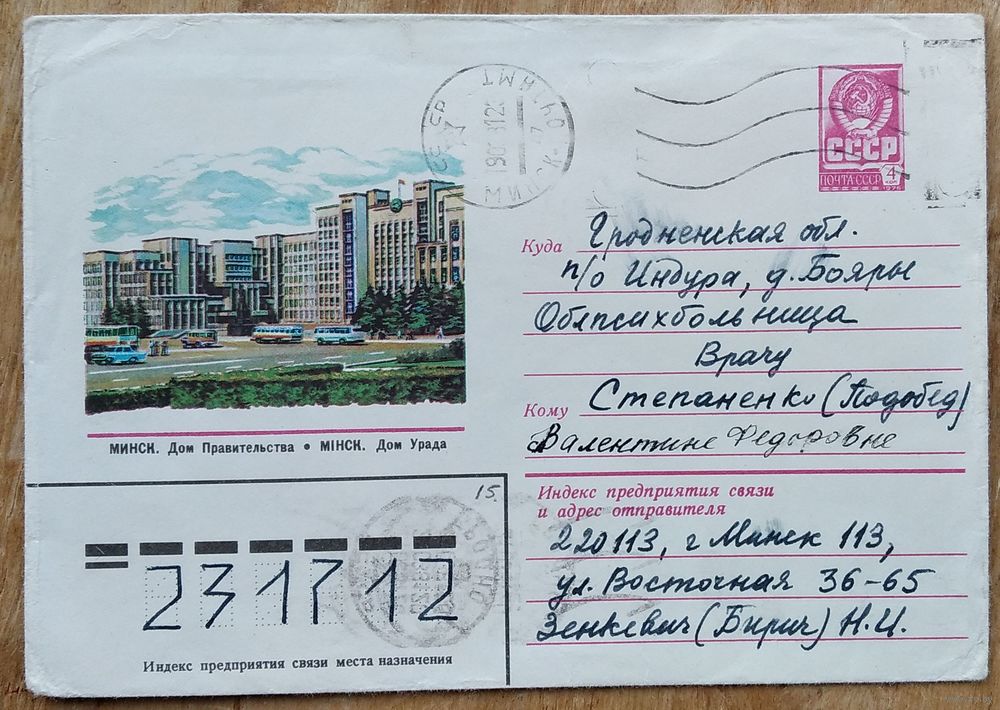 СССР
ПОЧТА СССР
4
КОП
1978
Куда Гродненская обл.
п/о Индура, д. Бояры
Облпсихбольница
Врачу
Кому Степаненко (Подобед)
Валентине Федоровне
МИНСК. Дом Правительства • МІНСК. Дом Урада
Индекс предприятия связи
и адрес отправителя
220113, г Минск 113,
ул. Восточная 36-65
Зенкевич (Бирич) Н.И.
15.
231712
Индекс предприятия связи места назначения